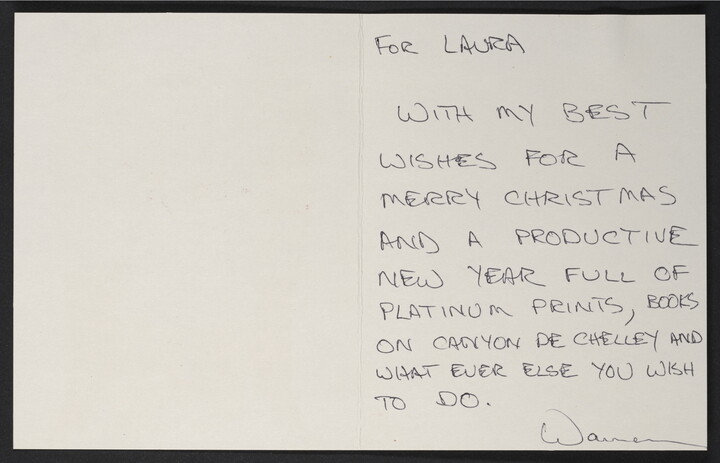 FOR LAURA
WITH MY BEST
WISHES FOR A
MERRY CHRISTMAS
AND A PRODUCTIVE
NEW YEAR FULL OF
PLATINUM PRINTS, BOOKS
ON CANYON DE CHELLEY AND
WHAT EVER ELSE YOU WISH
TO DO.